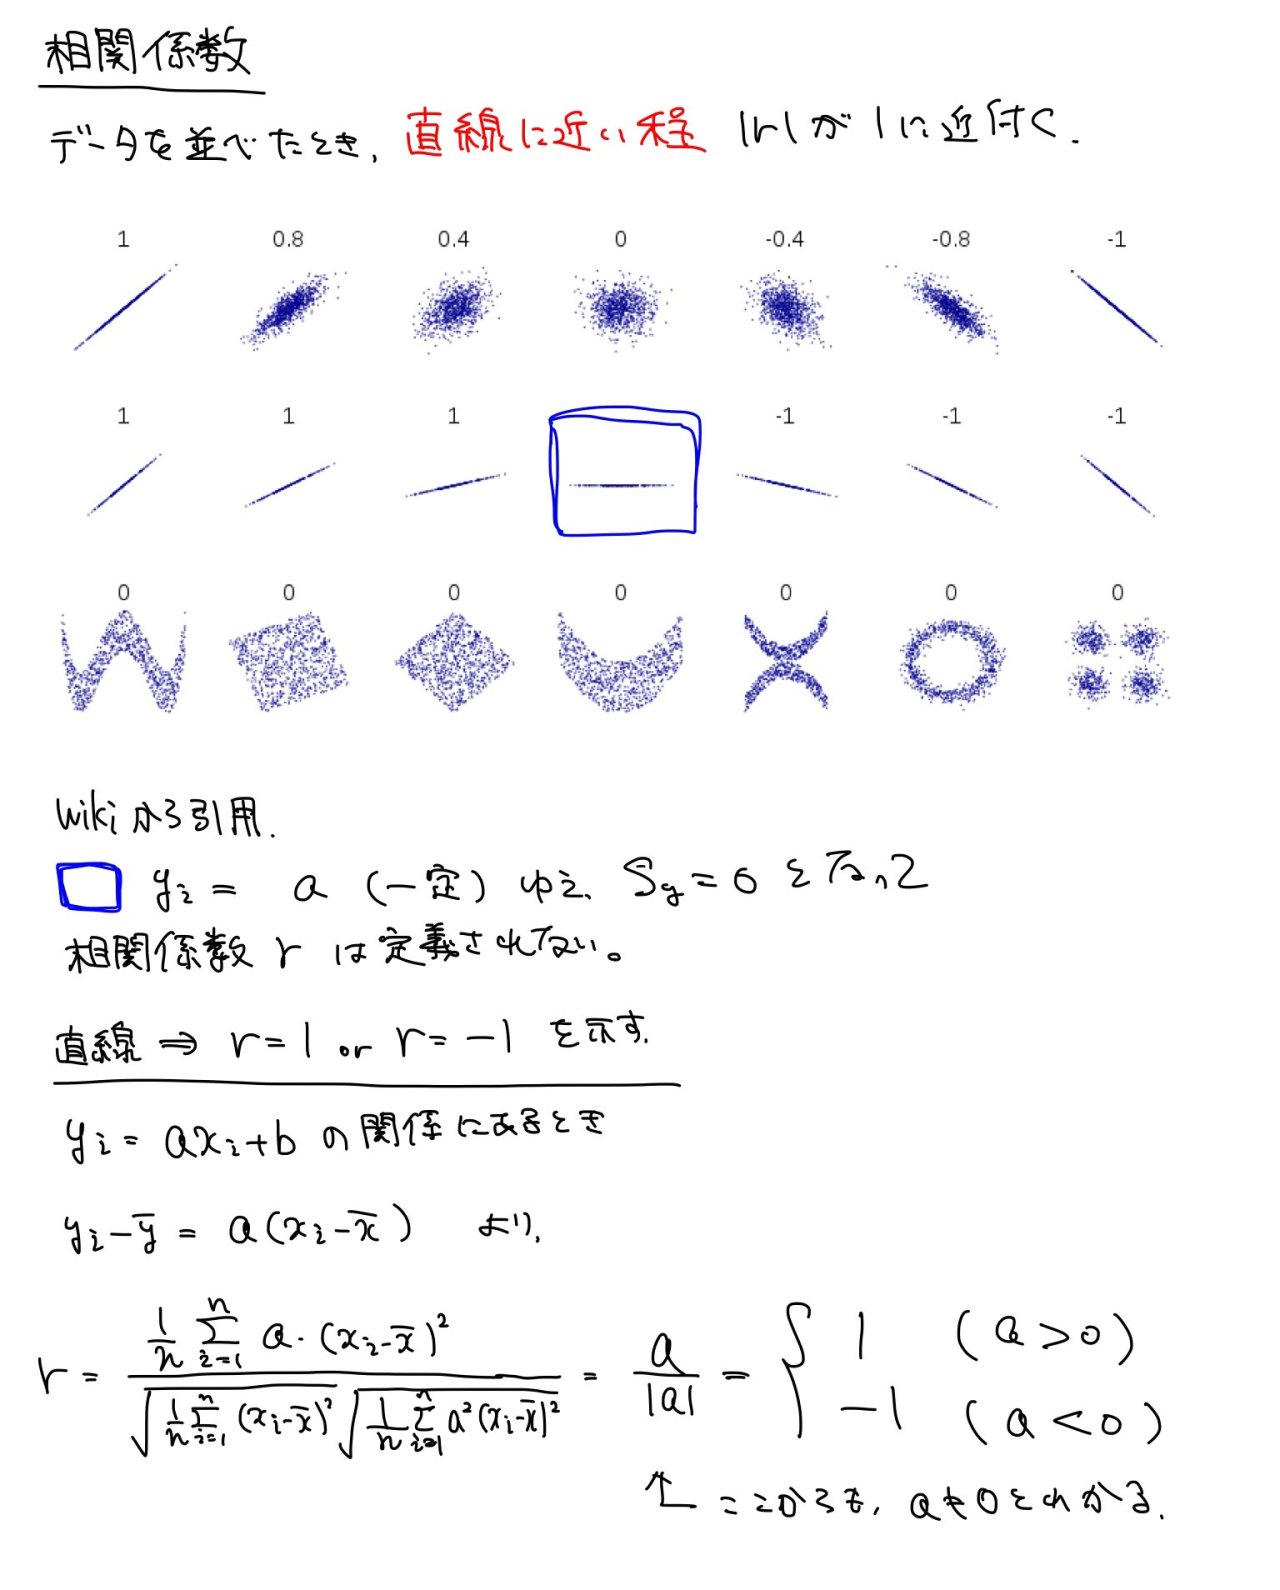 相関係数
データを並べたとき、直線に近い程 |r|が1に近付く.
1 0.8 0.4 0 -0.4 -0.8 -1
1 1 1 -1 -1 -1
0 0 0 0 0 0 0
wikiから引用.
y_i = a (一定) ゆえ、 S_y = 0 となって
相関係数 r は定義されない。
直線 ⇒ r=1 or r=-1 を示す.
y_i = ax_i+b の関係にあるとき
y_i-ȳ = a(x_i-x̄) より,
r = \frac{\frac{1}{n}\sum_{i=1}^{n} a・(x_i-x̄)^2}{\sqrt{\frac{1}{n}\sum_{i=1}^{n}(x_i-x̄)^2}\sqrt{\frac{1}{n}\sum_{i=1}^{n}a^2(x_i-x̄)^2}} = \frac{a}{|a|} = { 1 (a>0)
-1 (a<0)
ここからも、a≠0とわかる.